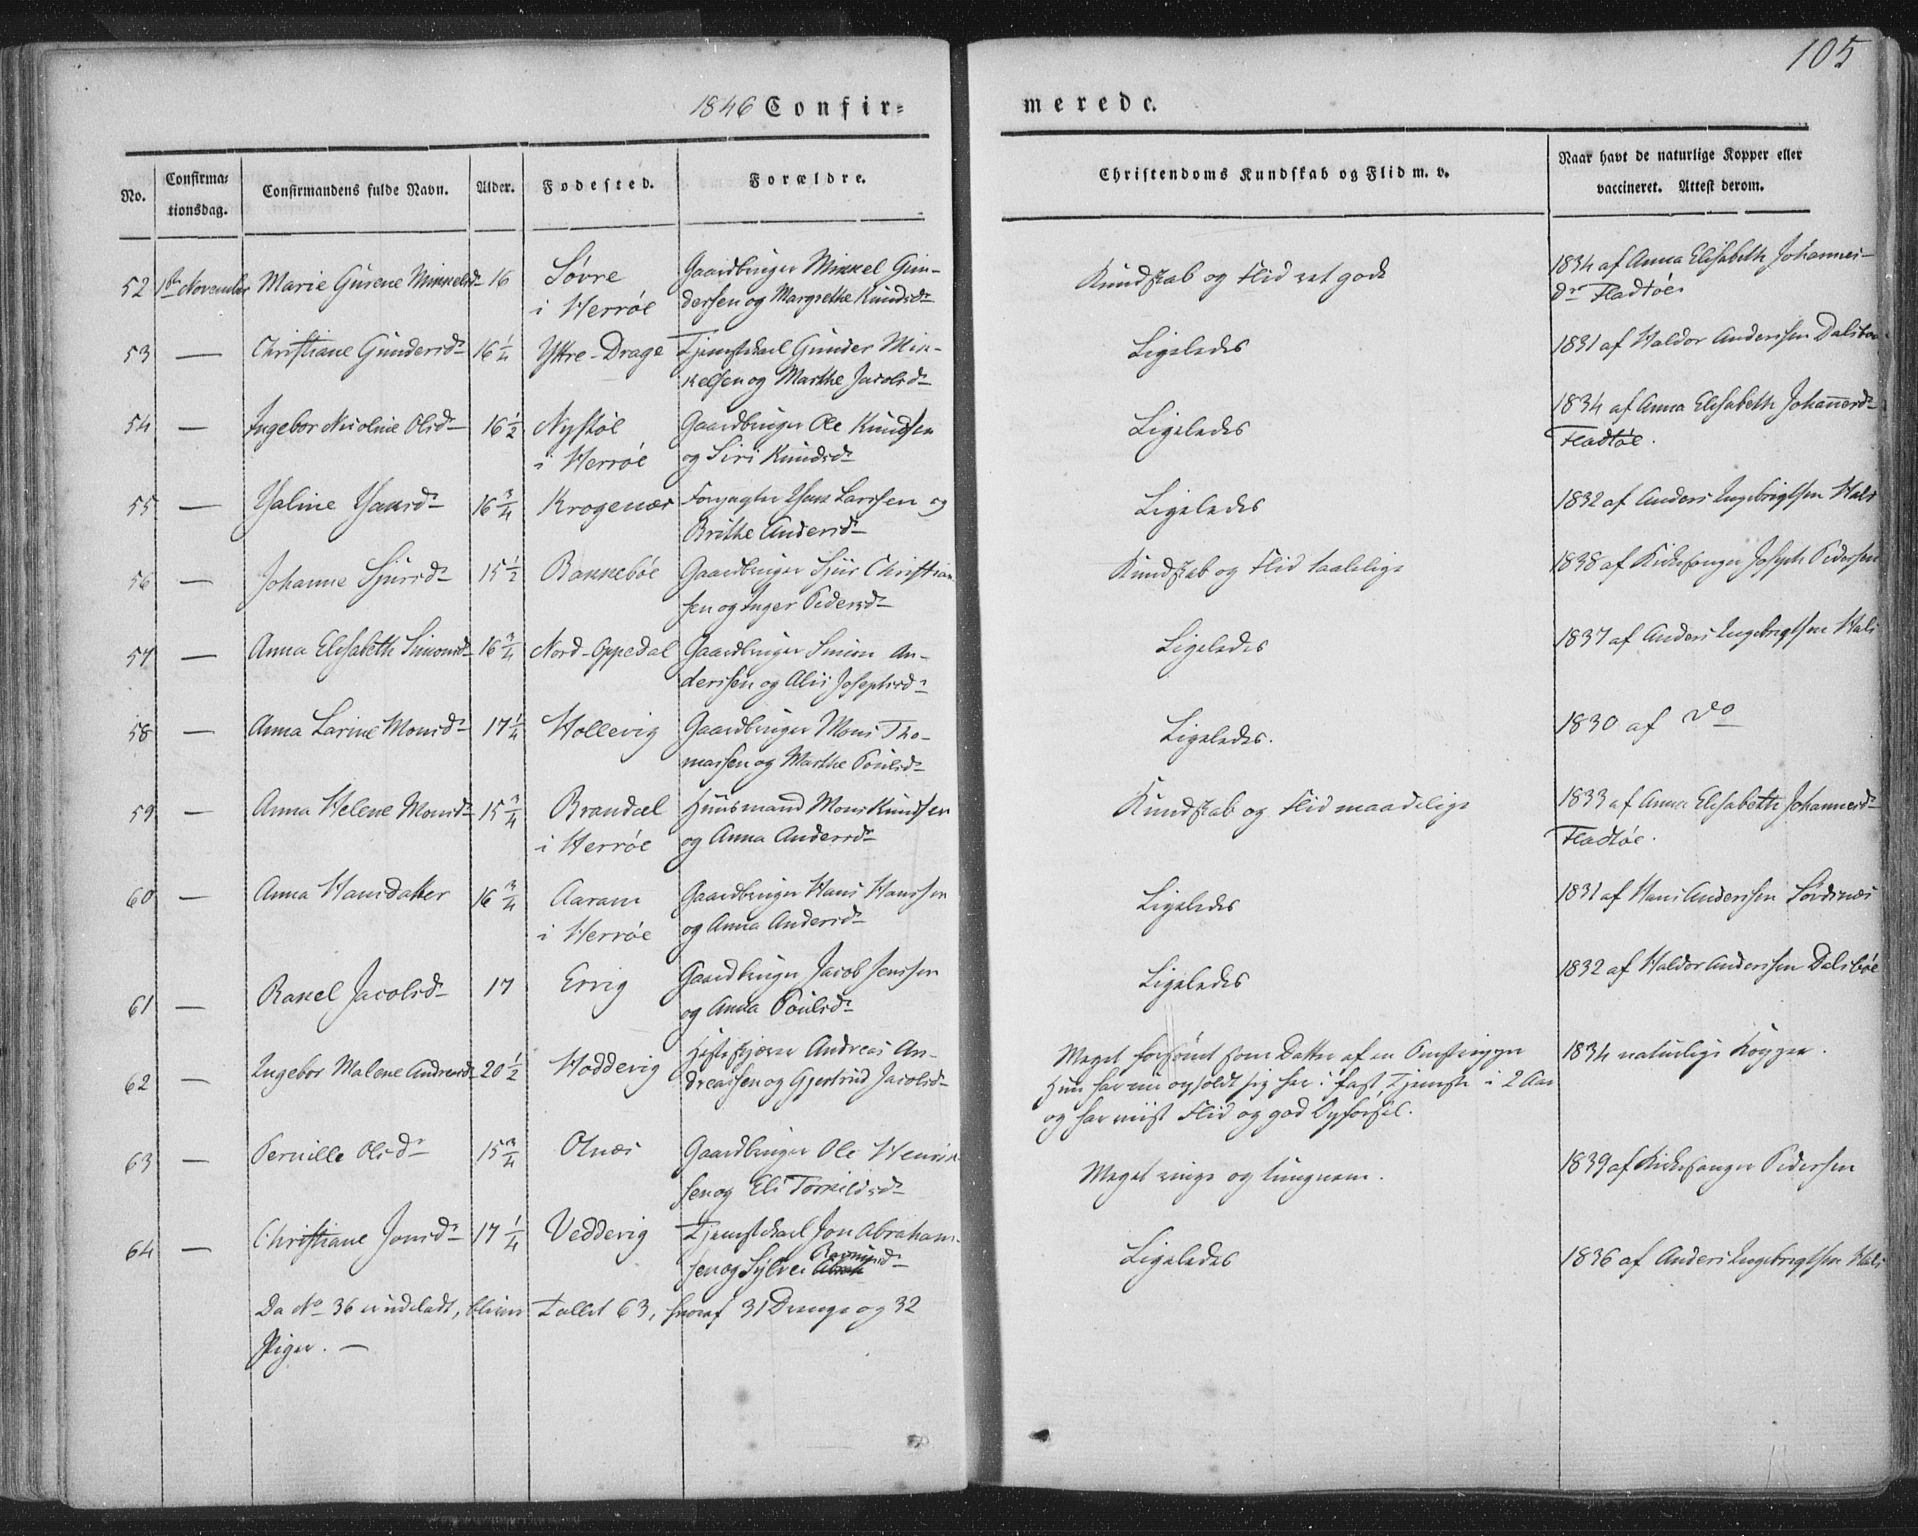 105
1846 Confir-
merede.
No.
Confirma-
tionsdag.
Confirmandens fulde Navn.
Alder.
Fodested.
Forældre.
Christendoms Kundskab og Flid m. v.
Naar havt de naturlige Kopper eller
vaccineret. Attest derom.
52 1ste November Marie Gurene Mikkelsd. 16 Søvre
i Herrøe
Gaardbruger Mikkel Gun-
dersen og Margrethe Knudsd.
Kundskab og Flid ret gode
1834 af Anna Elisabeth Johannes-
dr Fladtøe
53 — Christiane Gundersd. 16 1/4 Yttre-Drage
Tjenstekarl Gunder Mik-
kelsen og Marthe Jacobsd.
Ligeledes
1831 af Haldor Anderssen Dalsboe
54 — Ingebor Nicoline Olsd. 16 1/2 Nystøl
i Herrøe
Gaardbruger Ole Knudsen
og Siri Knudsd.
Ligeledes
1834 af Anna Elisabeth Johannesd.
Fladtøe.
55 — Haline Hansd. 16 3/4 Krogenæs
Forpagter Hans Larssen og
Brithe Andersd.
Ligeledes
1832 af Anders Ingebrigtsen Hals
56 — Johanne Sjursd. 15 1/2 Bakkebøe
Gaardbruger Sjur Christian-
sen og Inger Pedersd.
Kundskab og Flid taalelige
1838 af Kirkesanger Joseph Pedersen
57 — Anna Elisabeth Simonsd. 16 3/4 Nord-Oppedal
Gaardbruger Simon An-
derssen og Alis Josephsd.
Ligeledes
1837 af Anders Ingebrigtsen Hals
58 — Anna Larine Monsd. 17 1/4 Hollevig
Gaardbruger Mons Tho-
massen og Marthe Poulsd.
Ligeledes.
1830 af do
59 — Anna Helene Monsd. 15 3/4 Brandal
i Herrøe
Huusmand Mons Knudsen
og Anna Andersd.
Kundskab og Flid maadelige
1833 af Anna Elisabeth Johannesd.
Fladtøe.
60 — Anna Hansdatter 16 3/4 Aaram
i Herrøe
Gaardbruger Hans Hanssen
og Anna Andersd.
Ligeledes
1831 af Hans Anderssen Sordsnæs
61 — Rakel Jacobsd. 17 Ervig
Gaardbruger Jacob Jenssen
og Anna Poulsd.
Ligeledes
1832 af Haldor Anderssen Dalsbøe
62 — Ingebor Malene Andreasd. 20 1/2 Hoddevig
Andreas An-
dreassen og Gjertrud Jacobsd.
Meget forsømt som Datter af en Omstriger
Hun har nu opholdt sig her i fast Tjeneste i 2 Aar
og har viist Flid og god Opførsel.
1834 naturlige Kopper.
63 — Pernille Olsd. 15 3/4 Olnæs
Gaardbruger Ole Henrik-
sen og Eli Torkildsd.
Meget ringe og tungnem.
1839 af Kirkesanger Pedersen
64 — Christiane Jonsd. 17 1/4 Vedderig
Tjenstekarl Jon Abraham-
sen og Sylvei Rasmusd.
Ligeledes
1836 af Anders Ingebrigtsen Hals
Da No 36 er udeladt, bliver Tallet 63, hvoraf 31 Drenge og 32
Piger. —